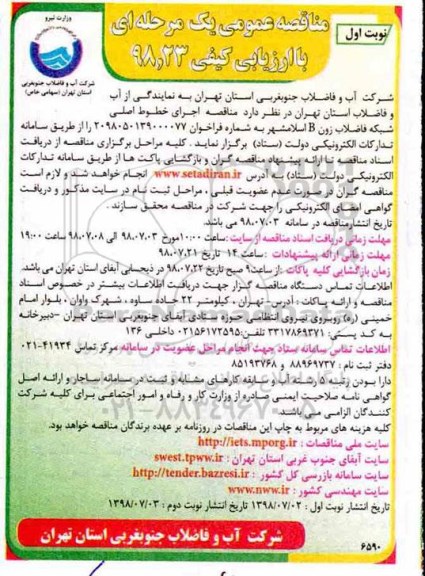 نوبت اول
مناقصه عمومی یک مرحله ای
با ارزیابی کیفی ۹۸,۲۳
وزارت نیرو
شرکت آب و فاضلاب جنوبغربی
استان تهران (سهامی خاص)
شرکت آب و فاضلاب جنوبغربی استان تهران به نمایندگی از آب
و فاضلاب استان تهران در نظر دارد مناقصه اجرای خطوط اصلی
شبکه فاضلاب زون B اسلامشهر به شماره فراخوان ۲۰۹۸۰۵۰۱۳۹۰۰۰۰۷۷ را از طریق سامانه
تدارکات الکترونیکی دولت (ستاد) برگزار نماید. کلیه مراحل برگزاری مناقصه از دریافت
اسناد مناقصه تا ارائه پیشنهاد مناقصه گران و بازگشایی پاکت ها از طریق سامانه تدارکات
الکترونیکی دولت (ستاد) به آدرس www.setadiran.ir انجام خواهد شد و لازم است
مناقصه گران در صورت عدم عضویت قبلی، مراحل ثبت نام در سایت مذکور و دریافت
گواهی امضای الکترونیکی را جهت شرکت در مناقصه محقق سازند.
تاریخ انتشار مناقصه در سامانه ۹۸.۰۷.۰۳ می باشد.
مهلت زمانی دریافت اسناد مناقصه از سایت: ساعت ۱۰:۰۰ مورخ ۹۸.۰۷.۰۳ الی ۹۸.۰۷.۰۸ ساعت ۱۹:۰۰
مهلت زمانی ارائه پیشنهادات: ساعت ۱۴ تاریخ ۹۸.۰۷.۲۱
زمان بازگشایی کلیه پاکات: از ساعت ۹ صبح تاریخ ۹۸.۰۷.۲۲ در ذیحسابی آبفای استان تهران می باشد.
اطلاعات تماس دستگاه مناقصه گزار جهت دریافت اطلاعات بیشتر در خصوص اسناد
مناقصه و ارائه پاکات: آدرس تهران، کیلومتر ۲۲ جاده ساوه، شهرک واوان، بلوار امام
خمینی (ره) روبروی نیروی انتظامی حوزه ستادی آبفای جنوبغربی استان تهران - دبیرخانه
به کد پستی: ۳۳۱۷۸۶۹۳۷۱ تلفن: ۰۲۱۵۶۱۷۲۵۹۵ داخلی ۱۳۶
اطلاعات تماس سامانه ستاد جهت انجام مراحل عضویت در سامانه مرکز تماس ۴۱۹۳۴-۰۲۱
دفتر ثبت نام: ۸۸۹۶۹۷۳۷ و ۸۵۱۹۳۷۶۸
دارا بودن رتبه ۵ رشته آب و سابقه کارهای مشابه و ثبت در سامانه ساجار و ارائه اصل
گواهی نامه صلاحیت ایمنی صادره از وزارت کار و رفاه و امور اجتماعی برای کلیه شرکت
کنندگان الزامی می باشد.
کلیه هزینه های مربوط به چاپ این مناقصات در روزنامه بر عهده برندگان مناقصه خواهد بود.
سایت ملی مناقصات: http://iets.mporg.ir
سایت آبفای جنوب غربی استان تهران: swest.tpww.ir
سایت سامانه بازرسی کل کشور: http://tender.bazresi.ir
سایت مهندسی کشور: www.nww.ir
تاریخ انتشار نوبت اول: ۱۳۹۸/۰۷/۰۲ تاریخ انتشار نوبت دوم: ۱۳۹۸/۰۷/۰۳
شرکت آب و فاضلاب جنوبغربی استان تهران
۶۵۹۰